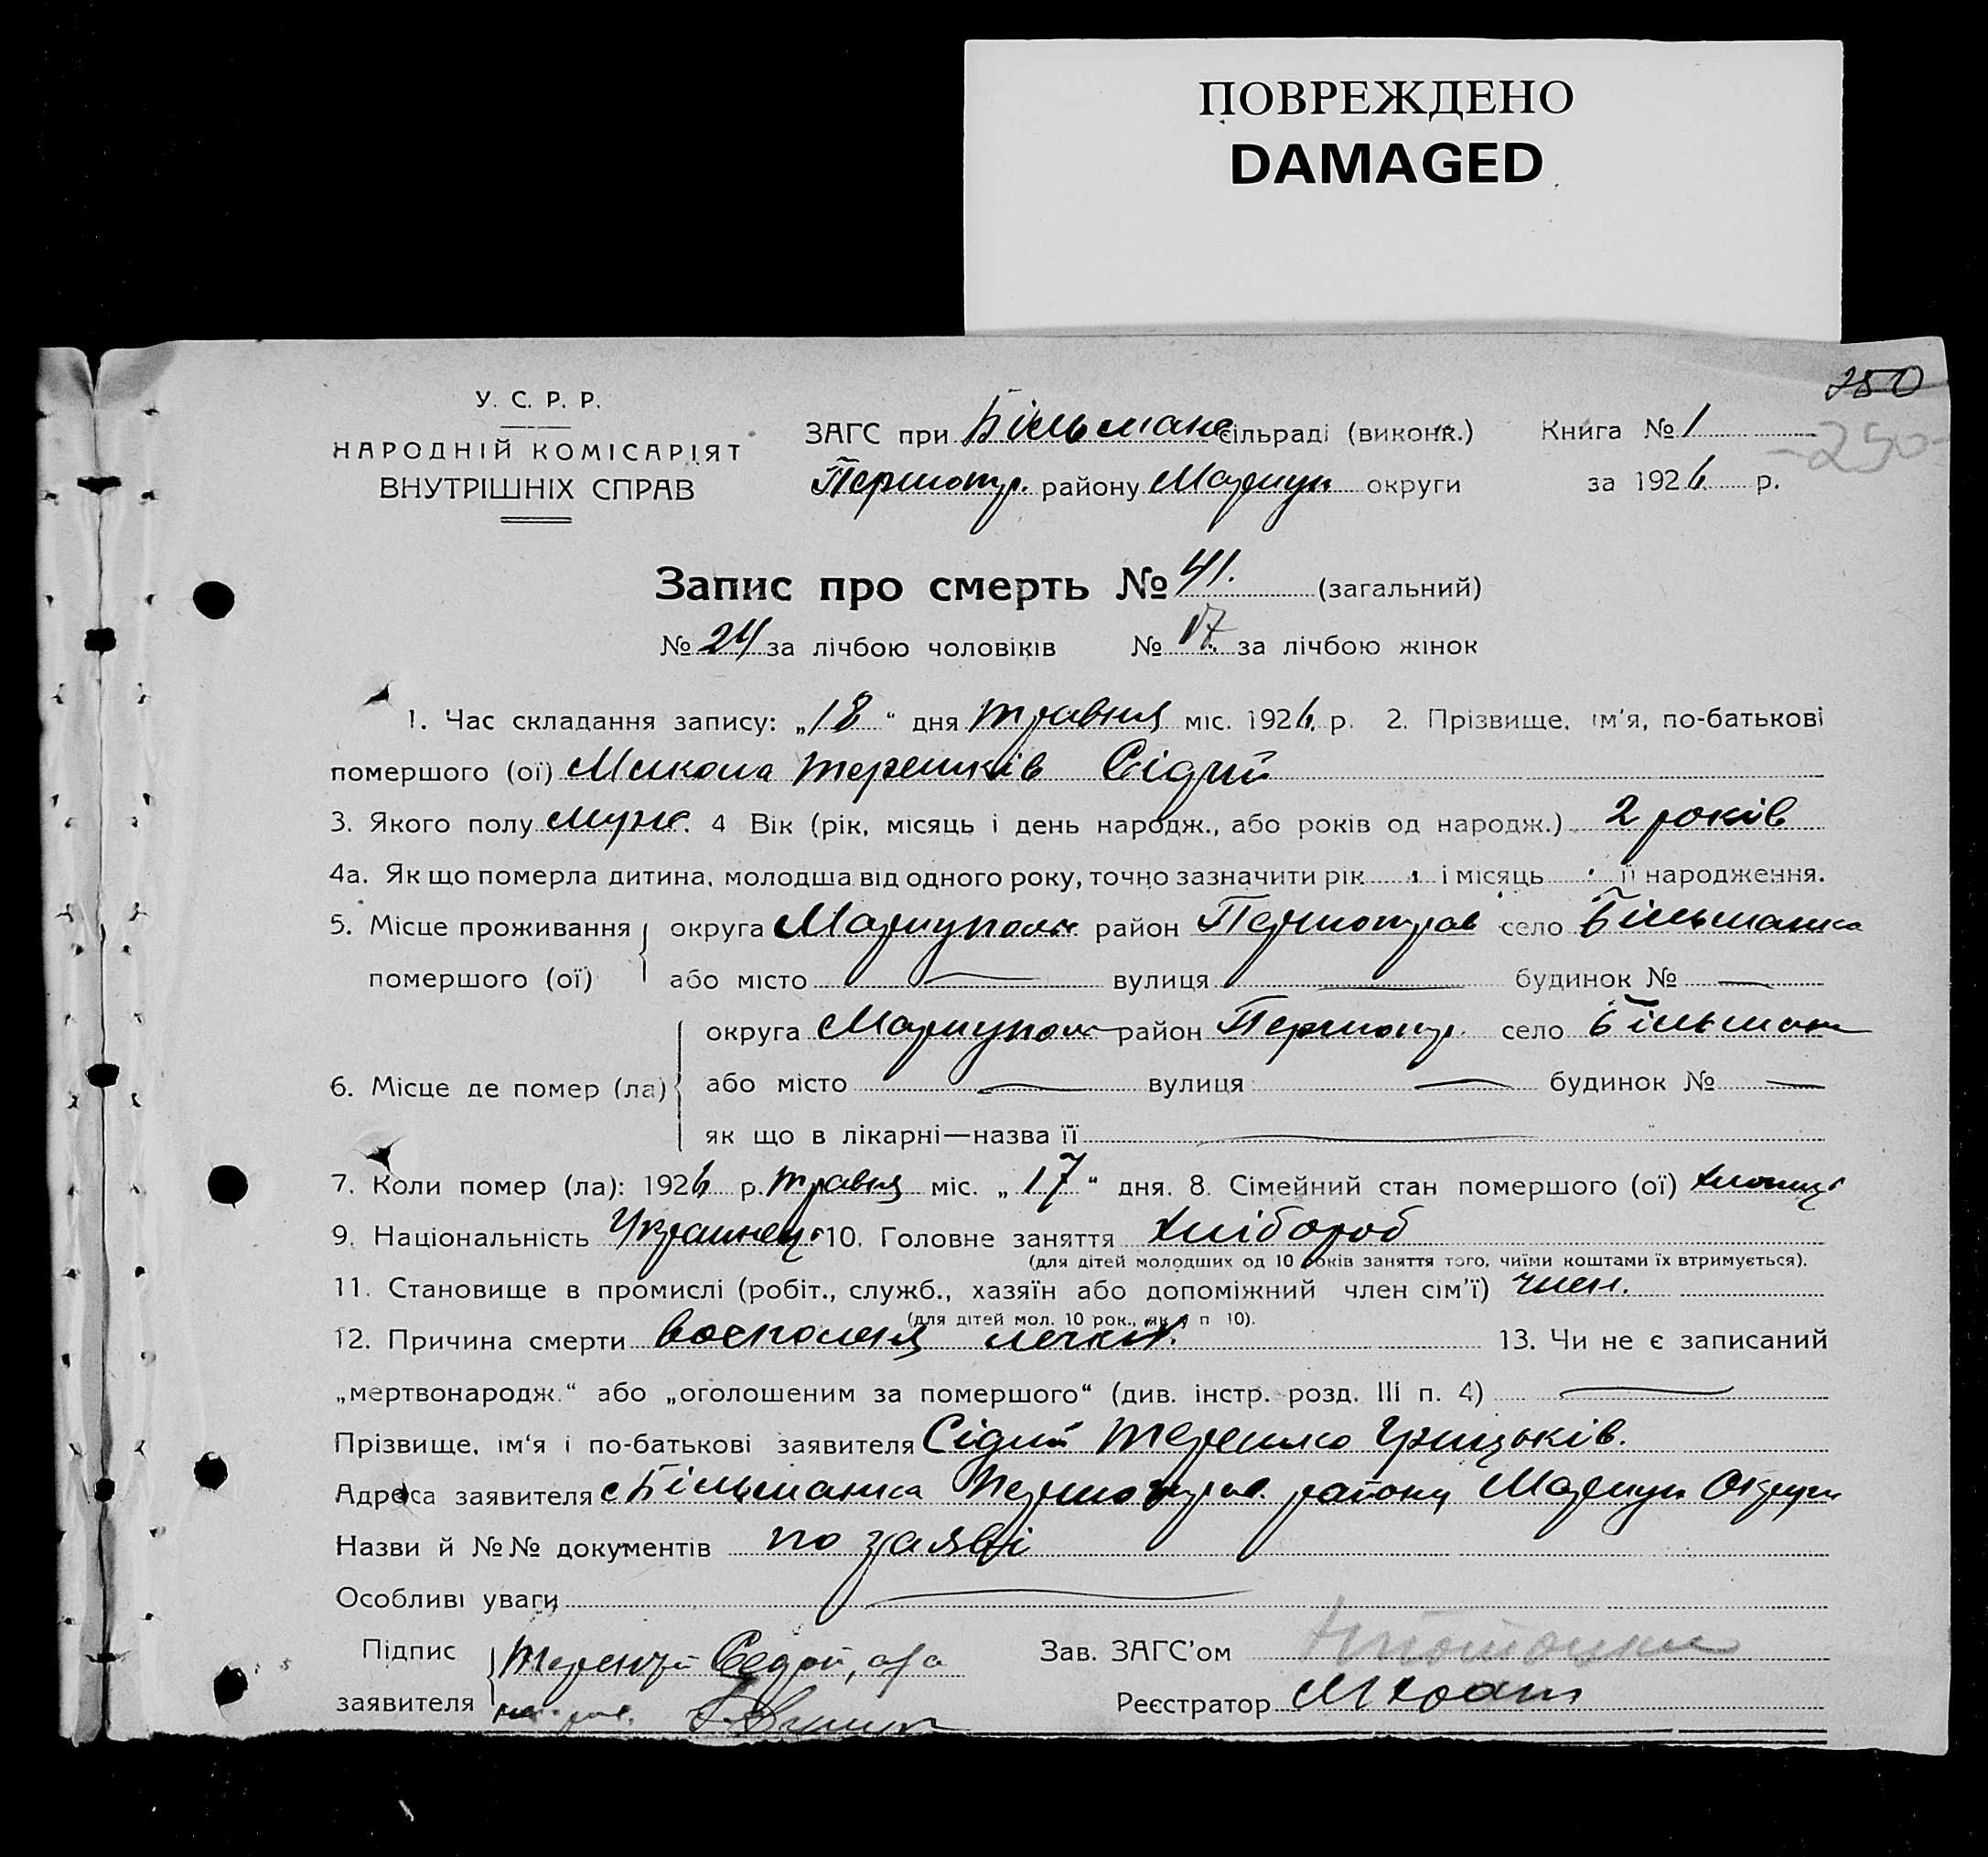 ПОВРЕЖДЕНО
DAMAGED
250
У. С. Р. Р.
НАРОДНІЙ КОМІСАРІЯТ
ВНУТРІШНІХ СПРАВ
ЗАГС при Більманс сільраді (виконк.) Книга № 1
-250-
Першотр. району Маріуп округи за 1926 р.
Запис про смерть № 41. (загальний)
№ 24 за лічбою чоловіків № 17. за лічбою жінок
1. Час складання запису: „18“ дня травня міс. 1926 р. 2. Прізвище, ім'я, по-батькові
помершого (ої) Микола Терешків Сідий
3. Якого полу муж. 4 Вік (рік, місяць і день народж., або років од народж.) 2 років
4а. Як що померла дитина, молодша від одного року, точно зазначити рік і місяць її народження.
5. Місце проживання округа Маріуполь район Першотрав село Більманка
помершого (ої) або місто — вулиця — будинок № —
округа Маріупол район Першотр. село Більман
6. Місце де помер (ла) або місто — вулиця — будинок № —
як що в лікарні—назва її —
7. Коли помер (ла): 1926 р. травня міс. „17“ дня. 8. Сімейний стан помершого (ої) хлопець
9. Національність Украинець 10. Головне заняття хлібороб
(для дітей молодших од 10 років заняття того, чиїми коштами їх втримується).
11. Становище в промислі (робіт., служб., хазяїн або допоміжний член сім'ї) член.
(для дітей мол. 10 рок., як у п 10).
12. Причина смерти воспаленя легких. 13. Чи не є записаний
„мертвонародж.“ або „оголошеним за помершого“ (див. інстр. розд. III п. 4) —
Прізвище, ім'я і по-батькові заявителя Сідий Терешко Грицьків.
Адреса заявителя с Більманка Першотрав. району Маріуп Округи
Назви й №№ документів по заяві
Особливі уваги —
Підпис Терентий Седой, а за Зав. ЗАГС'ом
заявителя Реєстратор